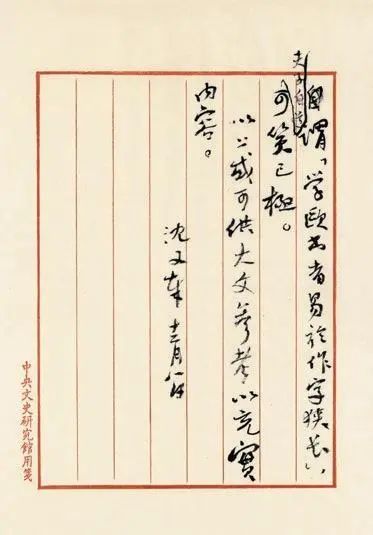 自謂「学欧书者易於作字狭长」，
夫子自道
可笑已極。
以上或可供大文参考以充實
内容。
沈 十二月八日
中央文史研究館用箋